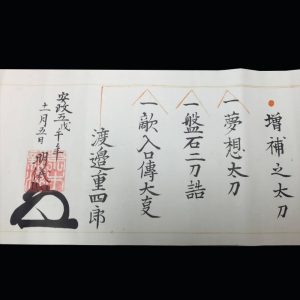 増補之太刀
一夢想太刀
一盤石二刀詰
一敵入口傳大叓
渡邉重四郎
安政五戊午年
十一月五日 明義